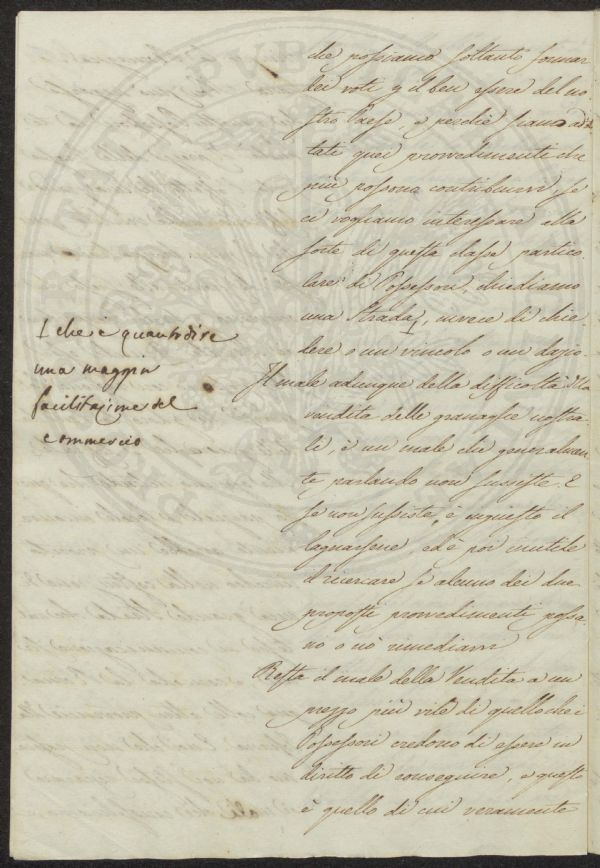 che possiamo soltanto formar
dei voti q il ben essere del no
stro Paese, e perchè siano adot
tati quei provvedimenti che
più possono contribuirvi. Se
ci vogliamo interessare alla
sorte di questa classe partico
lare di Possessori, chiediamo
una Strada, invece di chie
dere o un vincolo o un dazio.
Il male adunque della difficoltà della
vendita delle granaglie nostra
li, è un male che generalmen
te parlando non sussiste. E
se non sussiste, è ingiusto il
lagnarsene, ed è poi inutile
il ricercare se alcuno dei due
proposti provvedimenti possa
no o nò rimediarvi
Resta il male della Vendita a un
prezzo più vile di quello che i
Possessori credono di essere in
diritto di conseguire, e questo
è quello di cui veramente
che è quanto dire
una maggior
facilitazione del
commercio
PVB